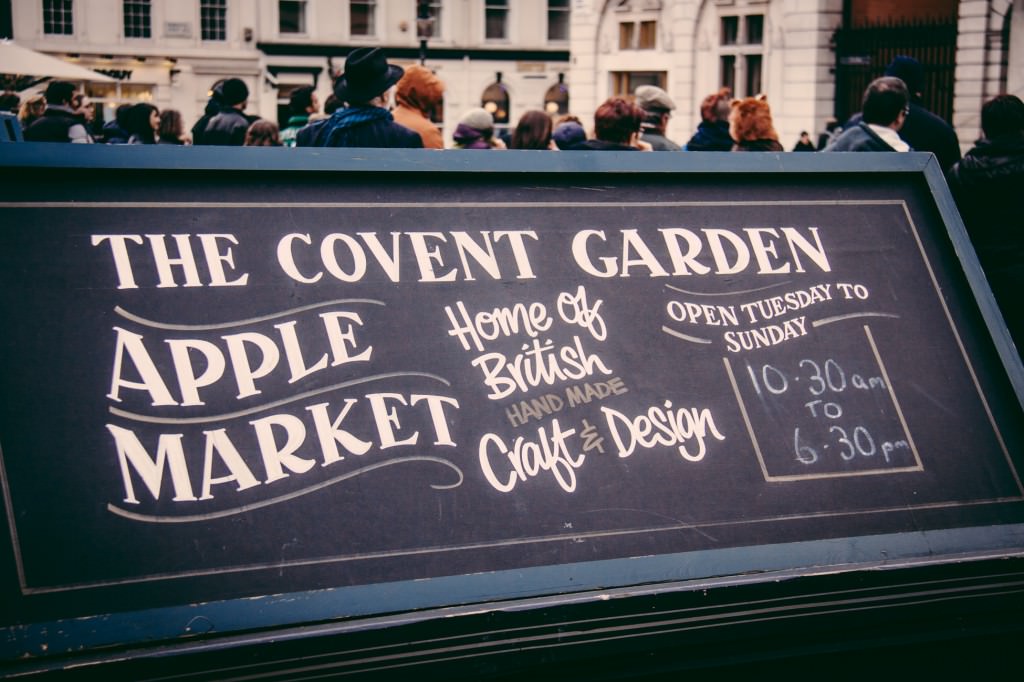 THE COVENT GARDEN
APPLE
MARKET
Home of
British
HAND MADE
Craft & Design
OPEN TUESDAY TO
SUNDAY
10·30am
TO
6·30pm